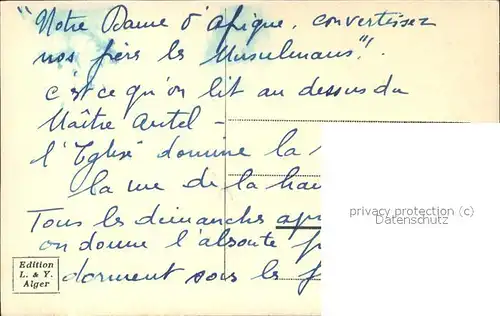 "Notre Dame d'Afrique, convertissez
nos frères les Musulmans"!
c'est ce qu'on lit au dessus du
Maître Autel -
l'Eglise domine la
la vue de la
Tous les dimanches
on donne l'absoute
dorment sous les
privacy protection (c)
Datenschutz
Edition
L. & Y.
Alger